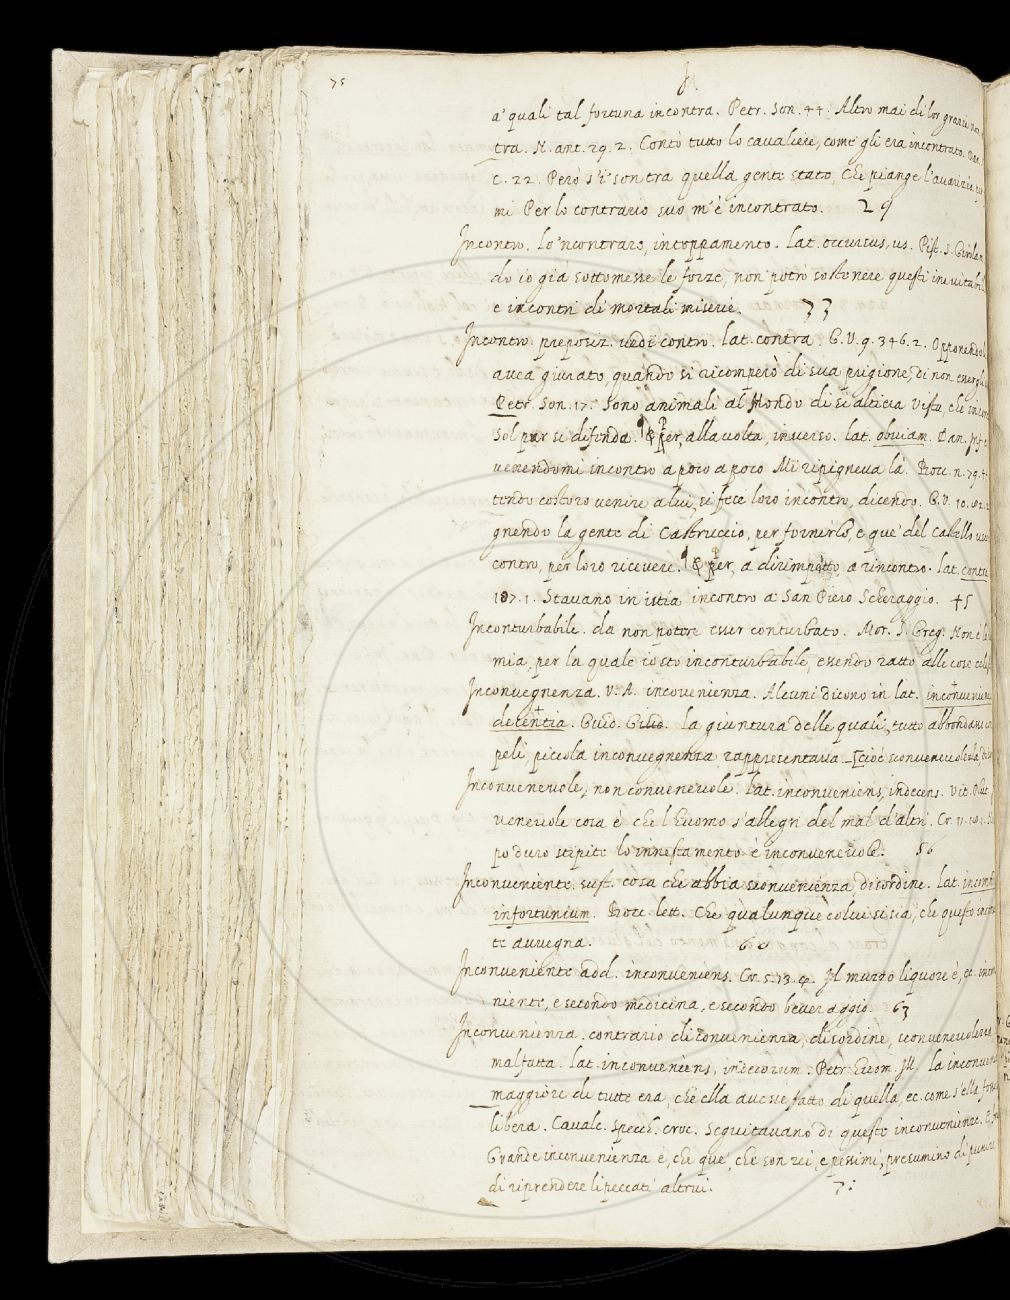 75
a' quali tal fortuna incontra. Petr. Son. 44. Altro mai di lor
tra. N. ant. 29. 2. Contò tutto lo cavaliere, come gli era incontrato.
C. 22. Però s'i' son tra quella gente stato, Che piange l'avarizia
mi Per lo contrario suo m'è incontrato. 29
Incontro. Lo 'ncontrare, intoppamento. Lat. occursus, us. Pist. S. Girol.
do io già sottomesse le forze, non potrò sostenere questi
e incontri di mortali miserie. 33
Incontro. preposiz. vedi contro. lat. contra. G. V. 9. 346. 2. Opponendo
avea giurato, quando si ricomperò di sua prigione, di non
Petr. Son. 17. Sono animali al Mondo di sì altiera Vista, che
Sol pur si difenda. ¶ Per, alla volta, inverso. lat. obviam. Dan.
venendomi incontro a poco a poco Mi ripigneva là. Bocc. n. 79.
costoro venire a lui, si fece loro incontro, dicendo. G. V. 10.
gnendo la gente di Castruccio, per fornirlo, e que' del Castello
contro, per loro ricevere. ¶ Per, a dirimpetto, a rincontro. lat. contra
187. 1. Stavano in istia incontro a San Piero Scheraggio. 45
Inconturbabile. da non potere esser conturbato. Mor. S. Greg. Non è
mia, per la quale io sto inconturbabile, essendo ratto alle cose
Inconvegnenza. V. A. inconvenienza. Alcuni dicono in lat.
decentia. Guid. Giud. la giuntura delle quali, tutto
peli, piccola inconvegnenza rappresentava. [cioè
Inconvenevole, non convenevole. Lat. inconveniens, indecens. Vit. Plut.
venevole cosa è che l'huomo s'allegri del mal d'altri. Cr.
po duro stipite lo innestamento è inconvenevole. 56
Inconveniente. sust. cosa che abbia sconvenienza, disordine. Lat.
infortunium. Bocc. lett. Che qualunque colui si sia, che questo
te avvegna. 60
Inconveniente add. inconveniens. Cr. 5. 13. Il murro liquore è, ec.
niente, e secondo medicina, e secondo beveraggio. 63
Inconvenienza. contrario di convenienza, disordine,
malfatta. lat. inconveniens, indecorum. Petr. huom. Ill. la
maggiore di tutte era, che ella avesse fatto di quella, ec. come s'ella
libera. Cavalc. Specch. Croc. Seguitavano di queste inconvenienze.
Grande inconvenienza è, che que', che son rei, e pessimi, presumino di
di riprendere li peccati altrui.